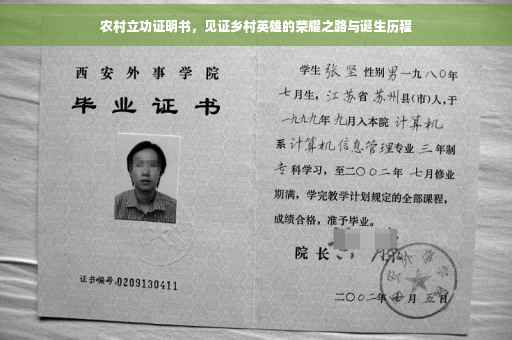 农村立功证明书，见证乡村英雄的荣耀之路与诞生历程
西安外事学院
毕业证书
证书编号:0209130411
学生张坚性别男一九八〇年
七月生，江苏省苏州县(市)人,于
一九九九年九月入本院计算机
系计算机信息管理专业三年制
专科学习，至二〇〇二年七月修业
期满，学完教学计划规定的全部课程，
成绩合格，准予毕业。
院长
二〇〇二年 月五日